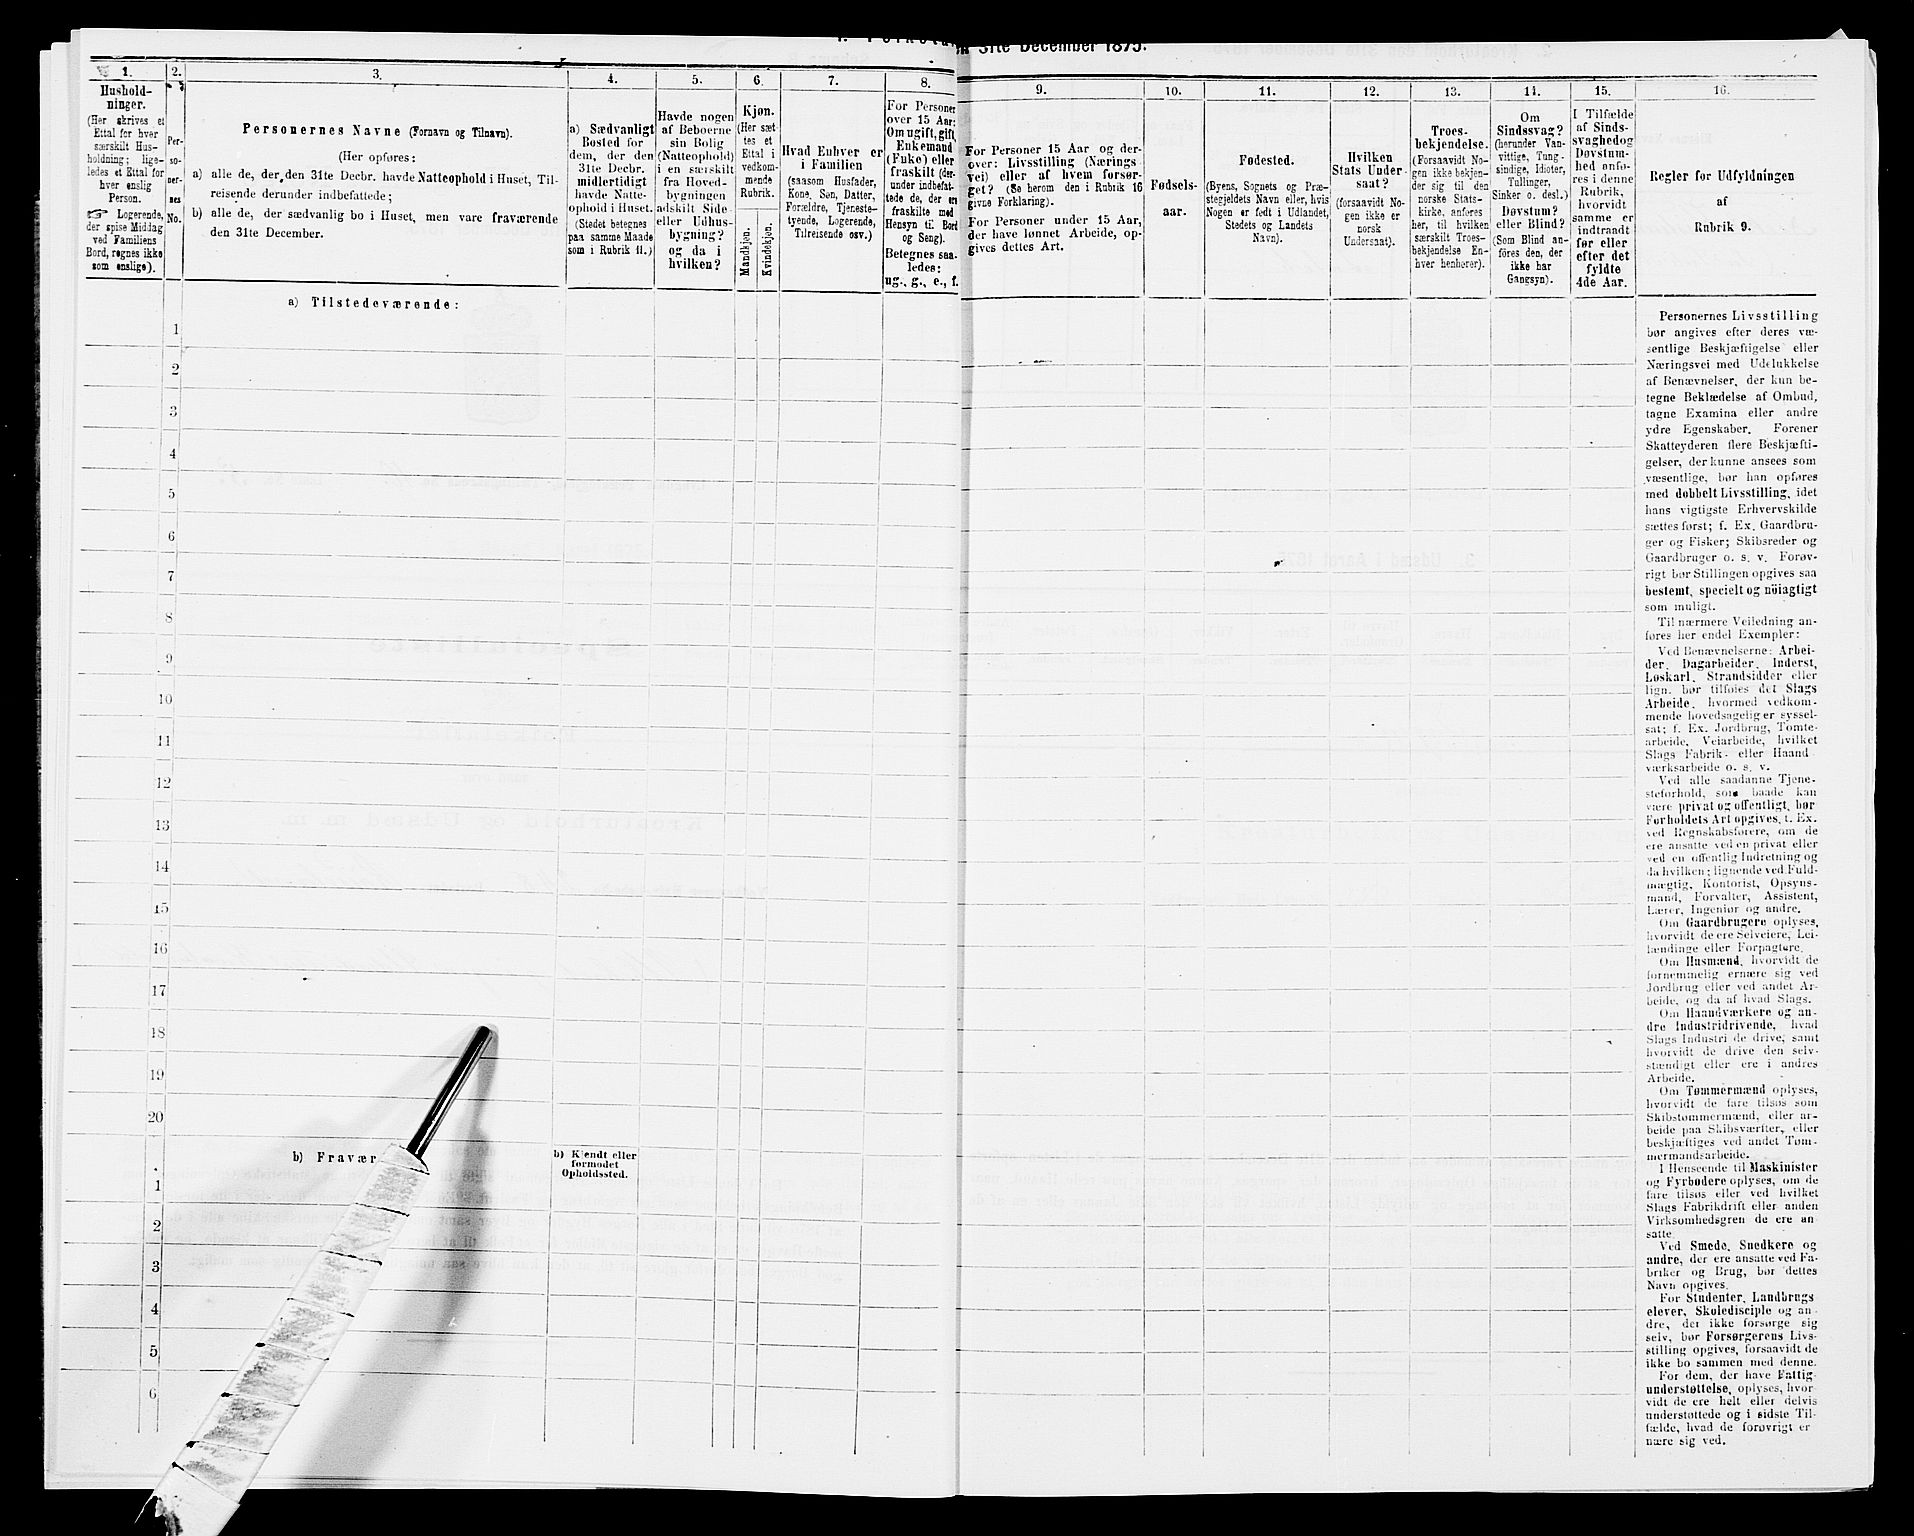 31te December 1875.
1.
Hushold-
ninger.
(Her skrives et
Ettal for hver
særskilt Hus-
holdning; lige-
ledes et Ettal for
hver enslig
Person.
☞ Logerende,
der spise Middag
ved Familiens
Bord, regnes ikke
som enslige).
2.
Per-
so-
ner-
nes
No.
3.
Personernes Navne (Fornavn og Tilnavn).
(Her opføres:
a) alle de, der den 31te Decbr. havde Natteophold i Huset, Til-
reisende derunder indbefattede;
b) alle de, der sædvanlig bo i Huset, men vare fraværende
den 31te December.
4.
a) Sædvanligt
Bosted for
dem, der den
31te Decbr.
midlertidigt
havde Natte-
ophold i Huset.
(Stedet betegnes
paa samme Maade
som i Rubrik 11.)
5.
Havde nogen
af Beboerne
sin Bolig
(Natteophold)
i en særskilt
fra Hoved-
bygningen
adskilt Side-
eller Udhus-
bygning?
og da i
hvilken?
6.
Kjøn.
(Her sæt-
tes et
Ettal i
vedkom-
mende
Rubrik.
Mandkjøn.
Kvindekjøn.
7.
Hvad Enhver er
i Familien
(saasom Husfader,
Kone, Søn, Datter,
Forældre, Tjeneste-
tyende, Logerende,
Tilreisende osv.)
8.
For Personer
over 15 Aar:
Om ugift, gift,
Enkemand
(Enke) eller
fraskilt (der-
under indbefat-
tede de, der ere
fraskilte med
Hensyn til Bord
og Seng).
Betegnes saa-
ledes:
ug., g., e., f.
9.
For Personer 15 Aar og der-
over: Livsstilling (Nærings
vei) eller af hvem forsør-
get? (Se herom den i Rubrik 16
givne Forklaring).
For Personer under 15 Aar,
der have lønnet Arbeide, op-
gives dettes Art.
10.
Fødsels-
aar.
11.
Fødested.
(Byens, Sognets og Præ-
stegjeldets Navn eller, hvis
Nogen er født i Udlandet,
Stedets og Landets
Navn).
12.
Hvilken
Stats Under-
saat?
(forsaavidt No-
gen ikke er
norsk
Undersaat).
13.
Troes-
bekjendelse.
(Forsaavidt No-
gen ikke bekjen-
der sig til den
norske Stats-
kirke, anføres
her, til hvilken
særskilt Troes-
bekjendelse En-
hver henhører).
14.
Om
Sindssvag?
(herunder Van-
vittige, Tung-
sindige, Idioter,
Tullinger,
Sinker o. desl.)
Døvstum?
eller Blind?
(Som Blind an-
føres den, der
ikke har
Gangsyn).
15.
I Tilfælde
af Sinds-
svaghed og
Døvstum-
hed anfø-
res i denne
Rubrik,
hvorvidt
samme er
indtraadt
før eller
efter det
fyldte
4de Aar.
16.
Regler for Udfyldningen
af
Rubrik 9.
a) Tilstedeværende:
1
2
3
4
5
6
7
8
9
10
11
12
13
14
15
16
17
18
19
20
b) Fravær
b) Kjendt eller
formodet
Opholdssted.
1
2
3
4
5
6
Personernes Livsstilling
bør angives efter deres væ-
sentlige Beskjæftigelse eller
Næringsvei med Udelukkelse
af Benævnelser, der kun be-
tegne Beklædelse af Ombud,
tagne Examina eller andre
ydre Egenskaber. Forener
Skatteyderen flere Beskjæfti-
gelser, der kunne ansees som
væsentlige, bør han opføres
med dobbelt Livsstilling, idet
hans vigtigste Erhvervskilde
sættes først; f. Ex. Gaardbru-
ger og Fisker; Skibsreder og
Gaardbruger o. s. v. Forøv-
rigt bør Stillingen opgives saa
bestemt, specielt og nøiagtigt
som muligt.
Til nærmere Veiledning an-
føres her endel Exempler:
Ved Benævnelserne: Arbei-
der, Dagarbeider, Inderst,
Løskarl, Strandsidder eller
lign. bør tilføies det Slags
Arbeide, hvormed vedkom-
mende hovedsagelig er syssel-
sat; f. Ex. Jordbrug, Tomte-
arbeide, Veiarbeide, hvilket
Slags Fabrik- eller Haand-
værksarbeide o. s. v.
Ved alle saadanne Tjene-
steforhold, som baade kan
være privat og offentligt, bør
Forholdets Art opgives, f. Ex.
ved Regnskabsførere, om de
ere ansatte ved en privat eller
ved en offentlig Indretning og
da hvilken; lignende ved Fuld-
mægtig, Kontorist, Opsyns-
mand, Forvalter, Assistent,
Lærer, Ingeniør og andre.
Om Gaardbrugere oplyses,
hvorvidt de ere Selveiere, Lei-
lændinge eller Forpagtere.
Om Husmænd, hvorvidt de
fornemmelig ernære sig ved
Jordbrug eller ved andet Ar-
beide, og da af hvad Slags.
Om Haandværkere og an-
dre Industridrivende, hvad
Slags Industri de drive, samt
hvorvidt de drive den selv-
stændigt eller ere i andres
Arbeide.
Om Tømmermænd oplyses,
hvorvidt de fare tilsøs som
Skibstømmermænd, eller ar-
beide paa Skibsværfter, eller
beskjæftiges ved andet Tøm-
mermandsarbeide.
I Henseende til Maskinister
og Fyrbødere oplyses, om de
fare tilsøs eller ved hvilket
Slags Fabrikdrift eller anden
Virksomhedsgren de ere an-
satte.
Ved Smede, Snedkere og
andre, der ere ansatte ved Fa-
briker og Brug, bør dettes
Navn opgives.
For Studenter, Landbrugs
elever, Skoledisciple og an-
dre, der ikke forsørge sig
selv, bør Forsørgerens Livs-
stilling opgives, forsaavidt de
ikke bo sammen med denne.
For dem, der have Fattig-
understøttelse, oplyses, hvor-
vidt de ere helt eller delvis
understøttede og i sidste Til-
fælde, hvad de forøvrigt er-
nære sig ved.